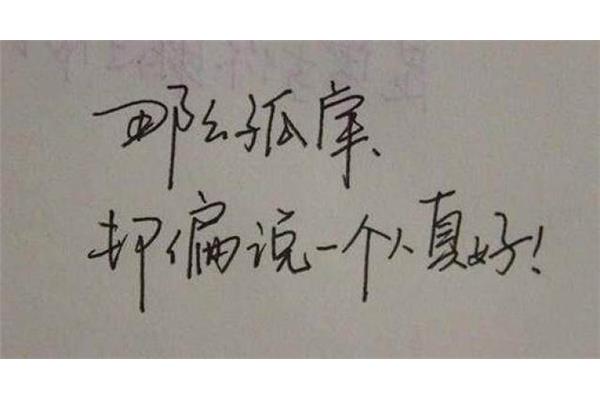 那么孤单、
却偏说一个人真好！